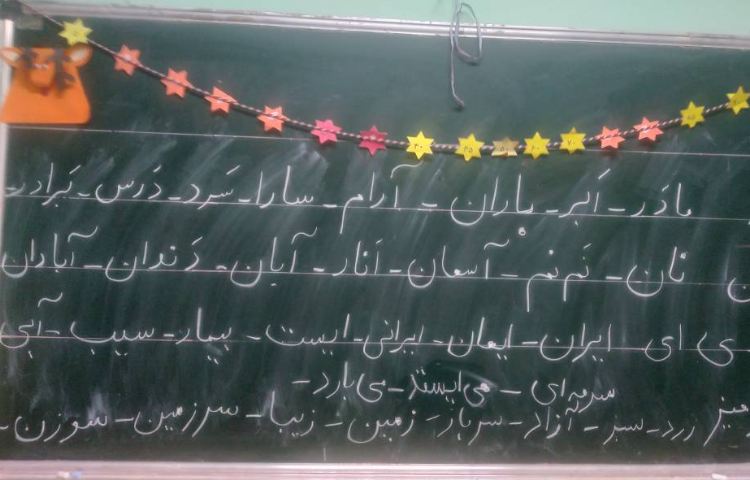 مادَر - اَبر - باران - آرام - سارا - سَرد - دَرس - بَرادر -
ن نان - نَم نَم - آسمان - اَنار - آبان - دَندان - آبادان
ی ای ایران - ایمان - ایرانی - ایست - بیمار - سیب - آبی
سرمه‌ای - می‌ایستد - می‌بارد -
زرد - سبز - آزاد - سرباز - زمین - زیبا - سرزمین - سوزن -